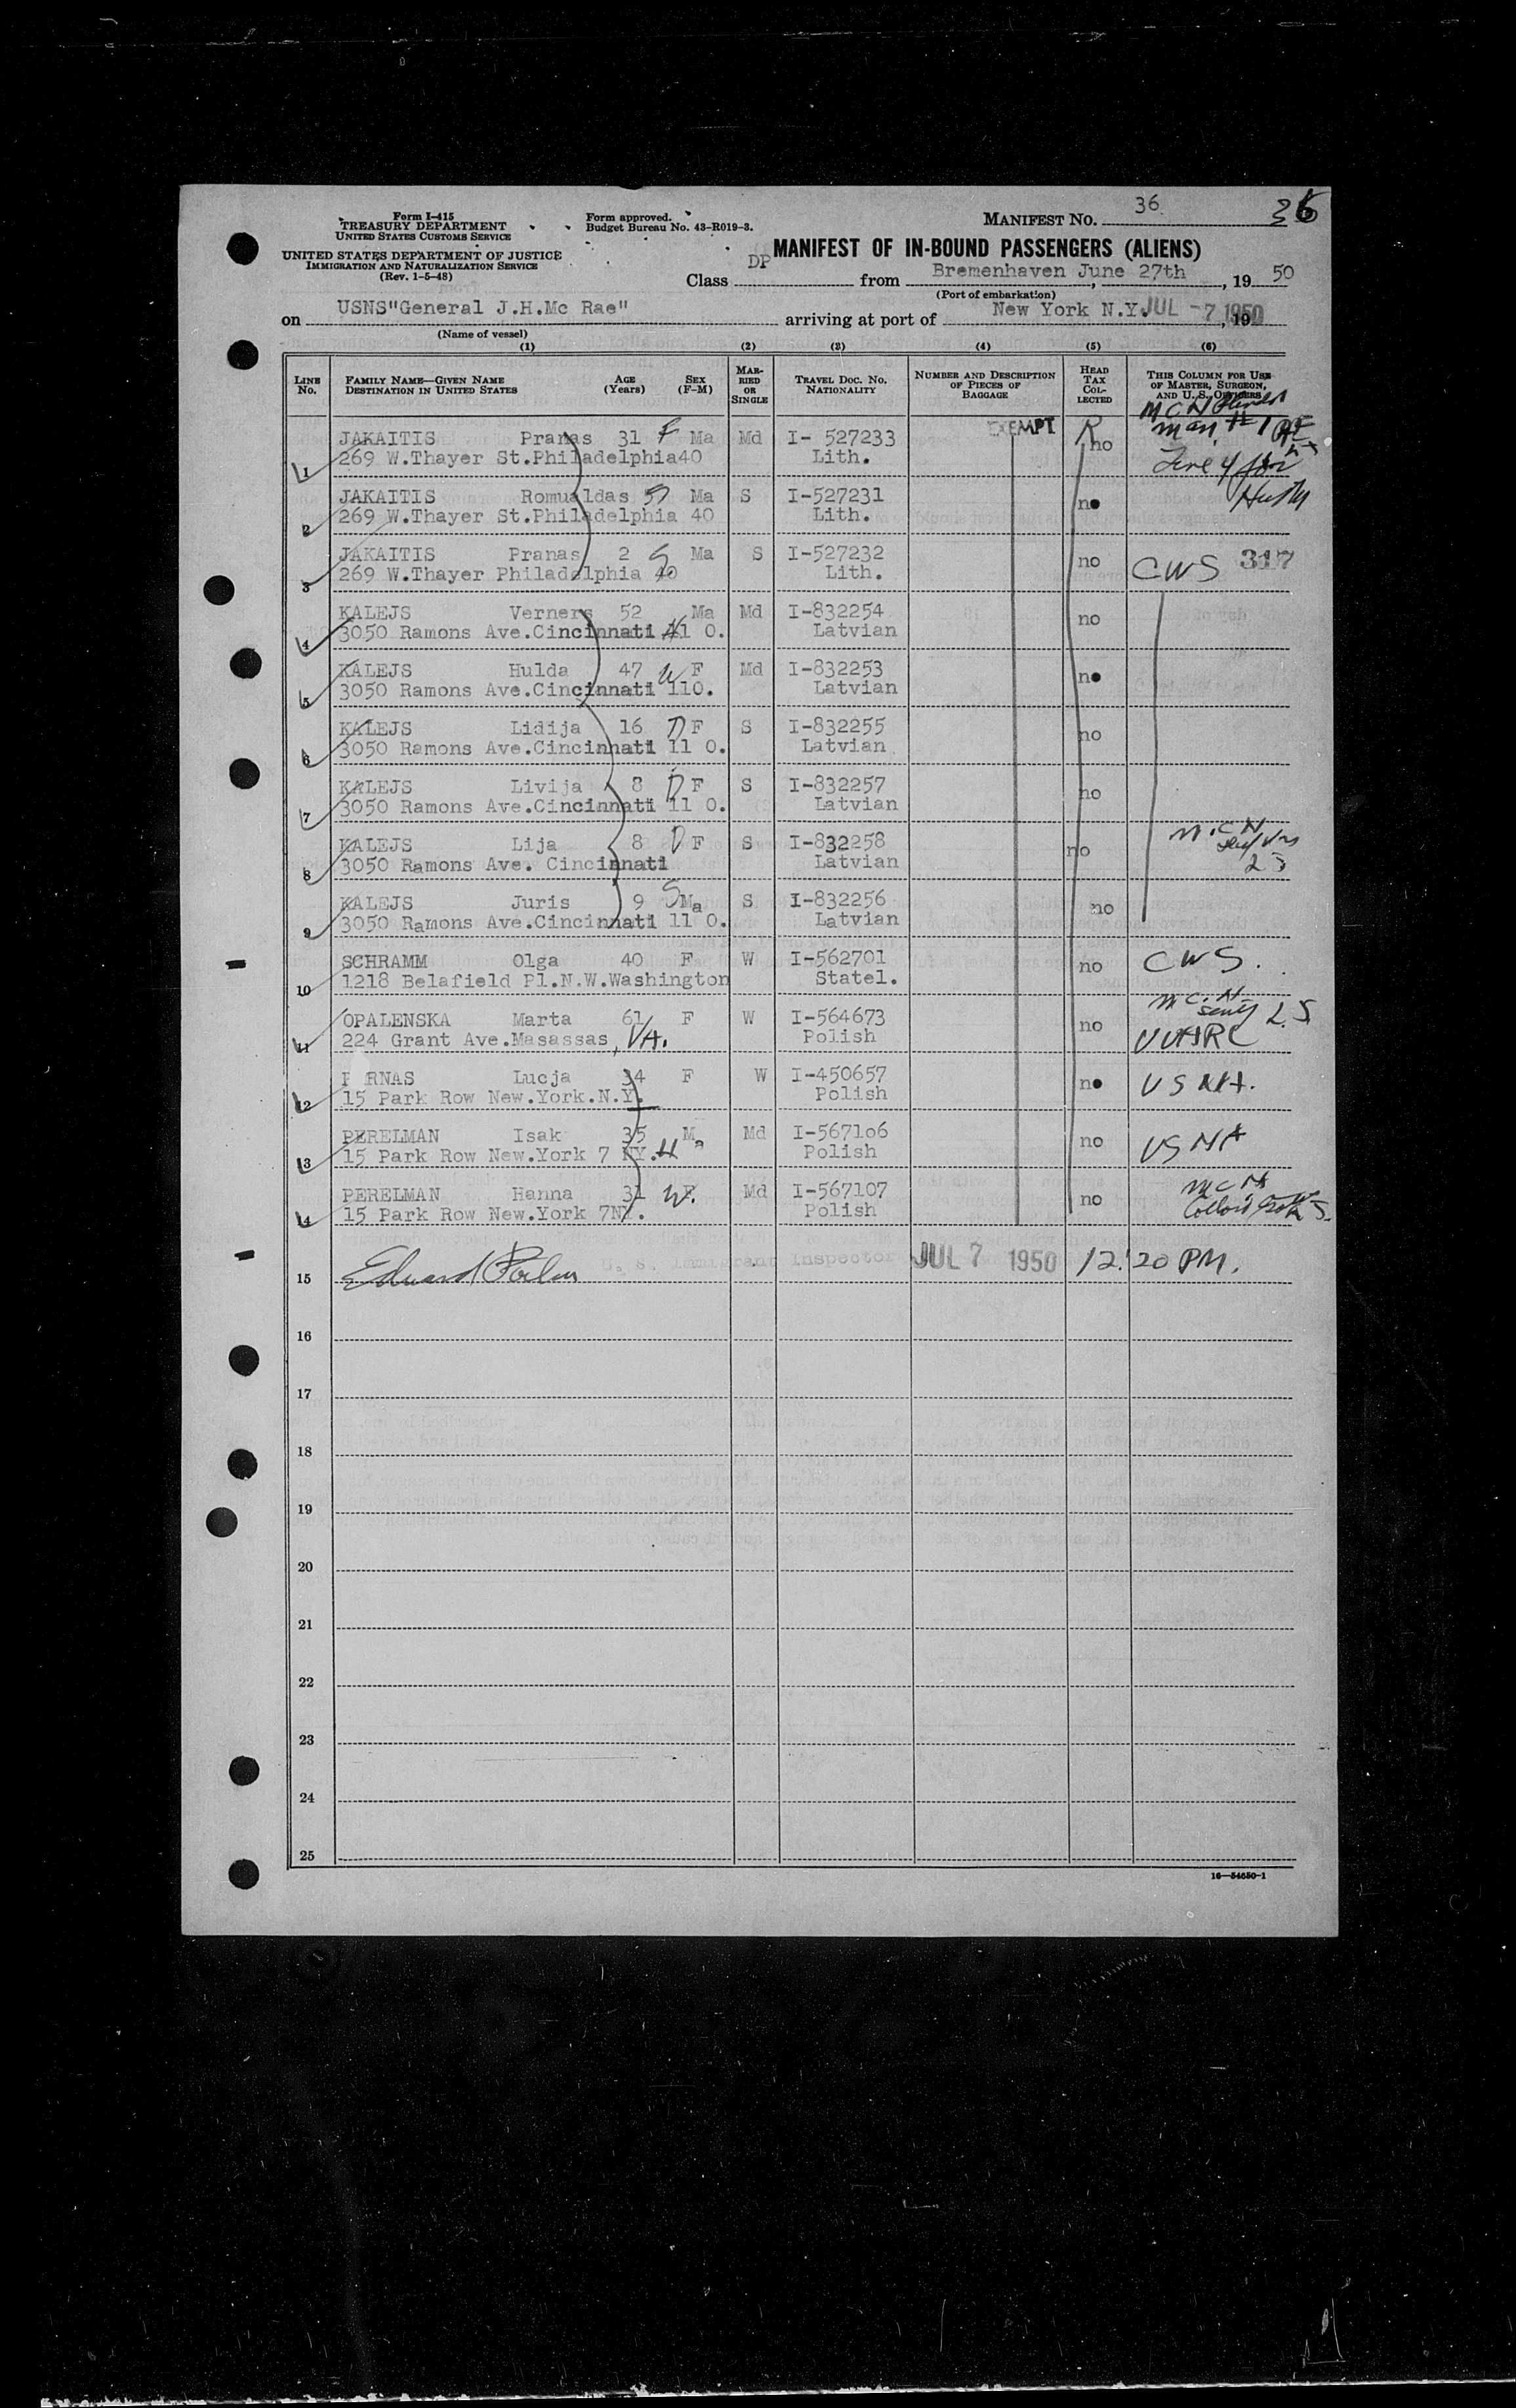 Form I-415
TREASURY DEPARTMENT
UNITED STATES CUSTOMS SERVICE
Form approved.
Budget Bureau No. 43-R019-3.
MANIFEST NO. 36
36
UNITED STATES DEPARTMENT OF JUSTICE
IMMIGRATION AND NATURALIZATION SERVICE
(Rev. 1-5-48)
MANIFEST OF IN-BOUND PASSENGERS (ALIENS)
Class DP from Bremenhaven June 27th, 19 50
(Port of embarkation)
on USNS"General J.H.Mc Rae" arriving at port of New York N.Y. JUL -7 1950, 19
(Name of vessel)
(1) (2) (3) (4) (5) (6)
LINE No. FAMILY NAME—GIVEN NAME DESTINATION IN UNITED STATES AGE (Years) SEX (F-M) MARRIED OR SINGLE TRAVEL DOC. NO. NATIONALITY NUMBER AND DESCRIPTION OF PIECES OF BAGGAGE HEAD TAX COLLECTED THIS COLUMN FOR USE OF MASTER, SURGEON, AND U. S. OFFICERS
1 JAKAITIS Pranas 31 F Ma Md I- 527233 EXEMPT R no
269 W.Thayer St.Philadelphia40 Lith.
2 JAKAITIS Romualdas Ma S I-527231 no
269 W.Thayer St.Philadelphia 40 Lith.
3 JAKAITIS Pranas 2 S Ma S I-527232 no CWS 317
269 W.Thayer Philadelphia 40 Lith.
4 KALEJS Verners 52 Ma Md I-832254 no
3050 Ramons Ave.Cincinnati 11 O. Latvian
5 KALEJS Hulda 47 W F Md I-832253 no
3050 Ramons Ave.Cincinnati 11O. Latvian
6 KALEJS Lidija 16 D F S I-832255 no
3050 Ramons Ave.Cincinnati 11 O. Latvian
7 KALEJS Livija 8 D F S I-832257 no
3050 Ramons Ave.Cincinnati 11 O. Latvian
8 KALEJS Lija 8 D F S I-832258 no M.C.N
3050 Ramons Ave. Cincinnati Latvian
9 KALEJS Juris 9 S Ma S I-832256 no
3050 Ramons Ave.Cincinnati 11 O. Latvian
10 SCHRAMM Olga 40 F W I-562701 no CWS.
1218 Belafield Pl.N.W.Washington Statel.
11 OPALENSKA Marta 61 F W I-564673 no M.C.N. L.S.
224 Grant Ave.Masassas, VA. Polish
12 RNAS Lucja 34 F W I-450657 no USNA.
15 Park Row New.York.N.Y. Polish
13 PERELMAN Isak 35 Ma Md I-567106 no USNA
15 Park Row New.York 7 NY. H Polish
14 PERELMAN Hanna 31 W. F Md I-567107 no MCN
15 Park Row New.York 7NY. Polish
15 Edward U. S. Immigrant Inspector JUL 7 1950 12:20 PM.
16
17
18
19
20
21
22
23
24
25
16—54650-1